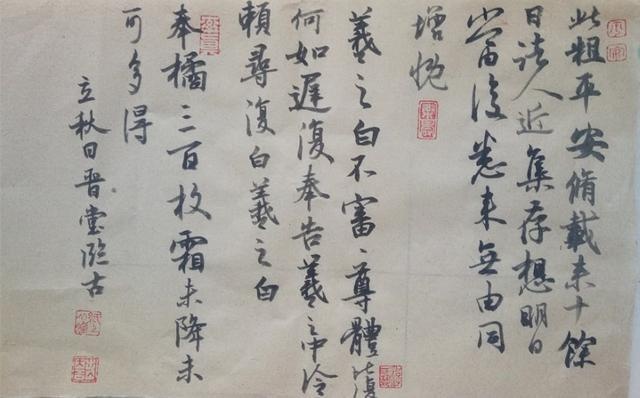 此粗平安脩載来十餘
日諸人近集存想明日
當復悉来無由同
增慨
羲之白不審〻尊體比復
何如遲復奉告羲之中冷
賴尋復白羲之白
奉橘三百枚霜未降未
可多得
立秋日晋堂臨古